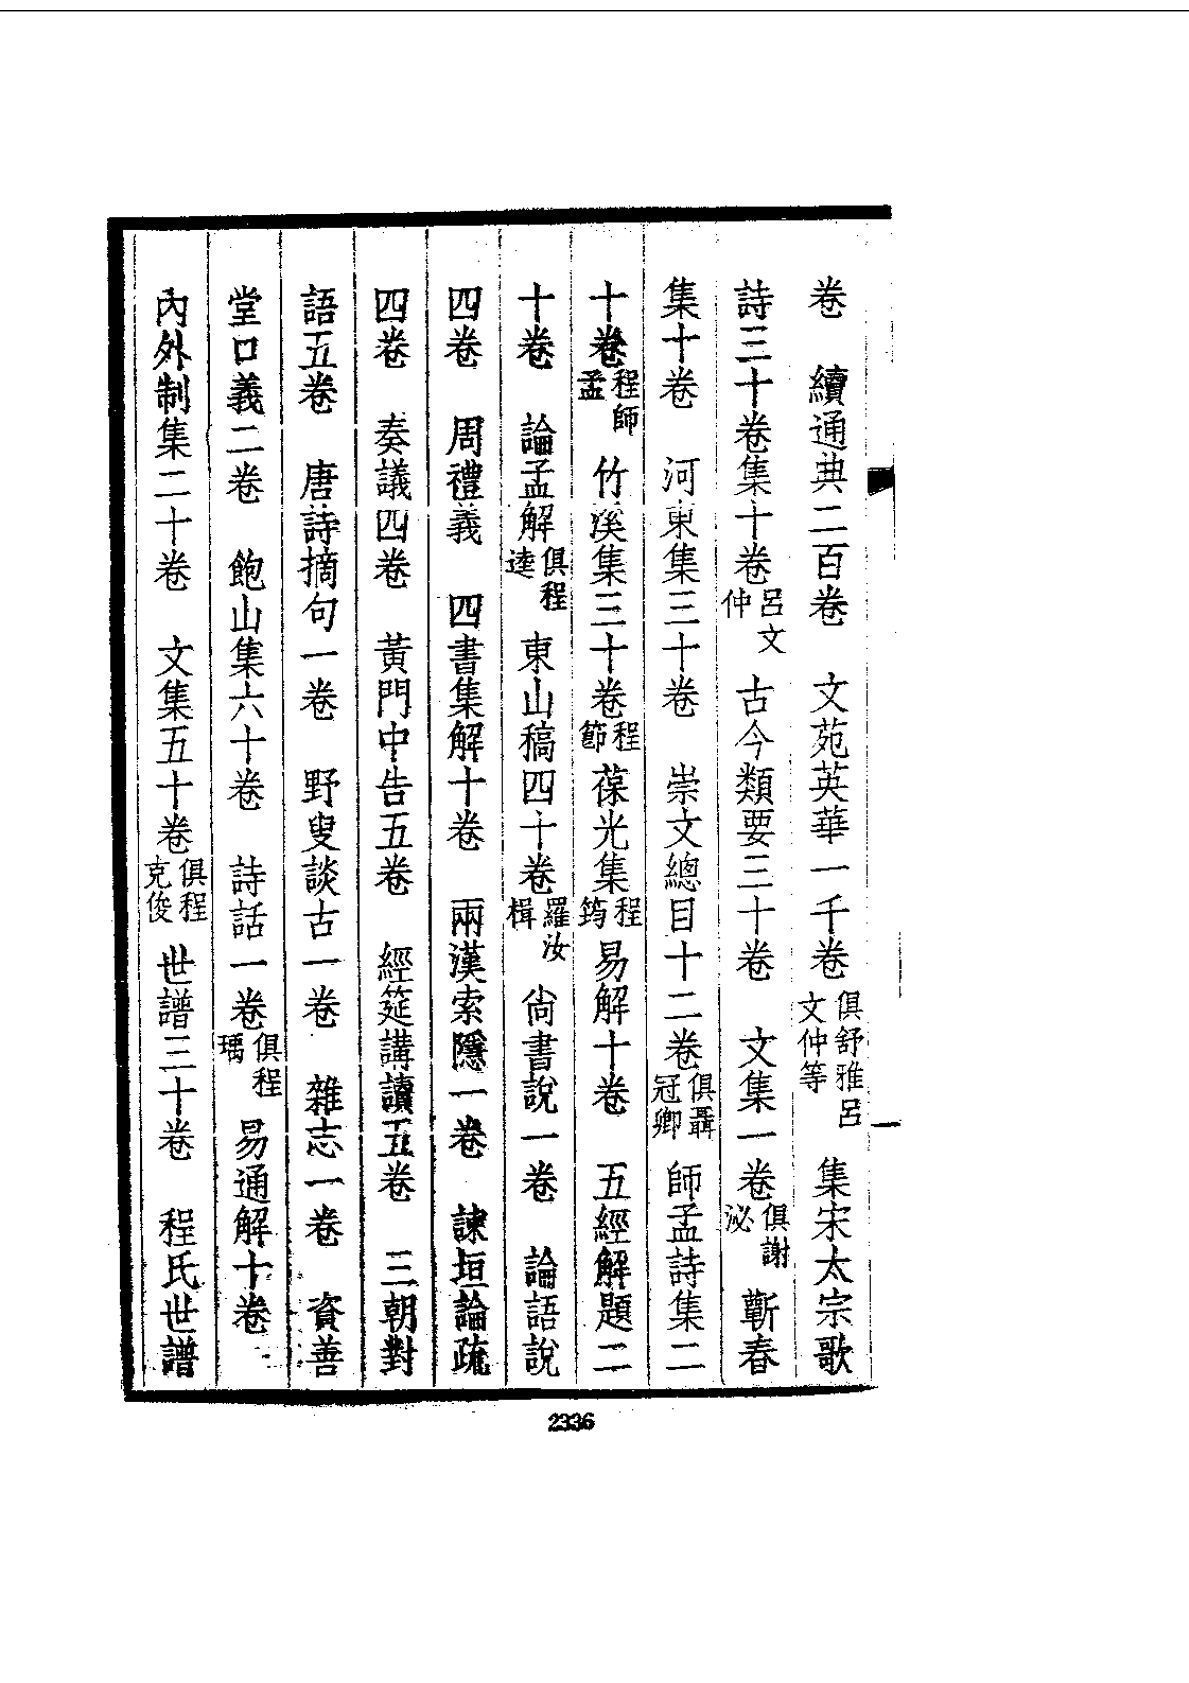 卷　續通典二百卷　文苑英華一千卷俱舒雅呂文仲等　集宋太宗歌
詩三十卷集十卷呂文仲　古今類要三十卷　文集一卷俱謝泌　蘄春
集十卷　河東集三十卷　崇文總目十二卷俱聶冠卿　師孟詩集二
十卷程師孟　竹溪集三十卷程節　葆光集程筠　易解十卷　五經解題二
十卷　論孟解俱程逵　東山稿四十卷羅汝楫　尚書說一卷　論語說
四卷　周禮義　四書集解十卷　兩漢索隱一卷　諫垣論疏
四卷　奏議四卷　黃門中告五卷　經筵講讀五卷　三朝對
語五卷　唐詩摘句一卷　野叟談古一卷　雜志一卷　資善
堂口義二卷　飽山集六十卷　詩話一卷俱程瑀　易通解十卷
內外制集二十卷　文集五十卷俱程克俊　世譜三十卷　程氏世譜
一
2336